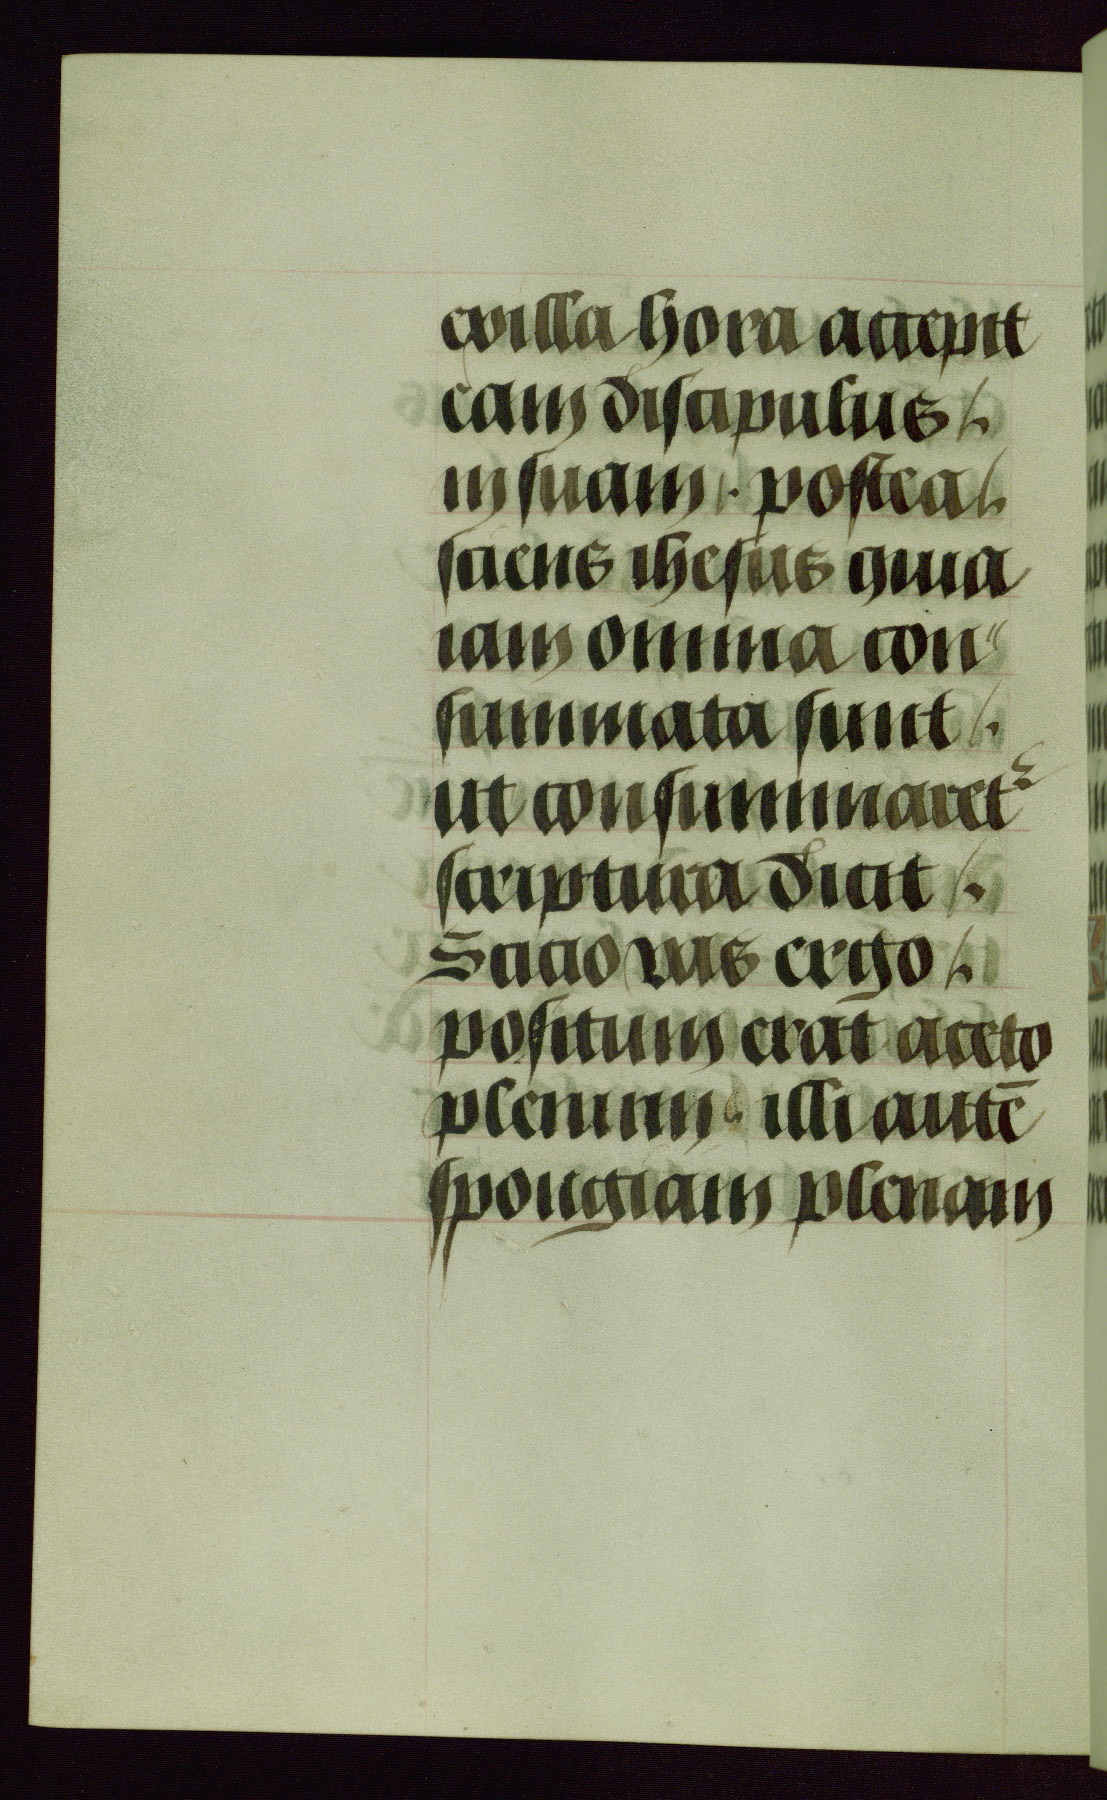 exilla hora accepit
eam discipulus /.
in suam /. postea /.
sciens ihesus quia
iam omnia con"
summata sunt /.
ut consummaret᷑
scriptura dicit /.
Scicio vas ergo /.
positum erat aceto
plenum . illi autē
spongiam plenam